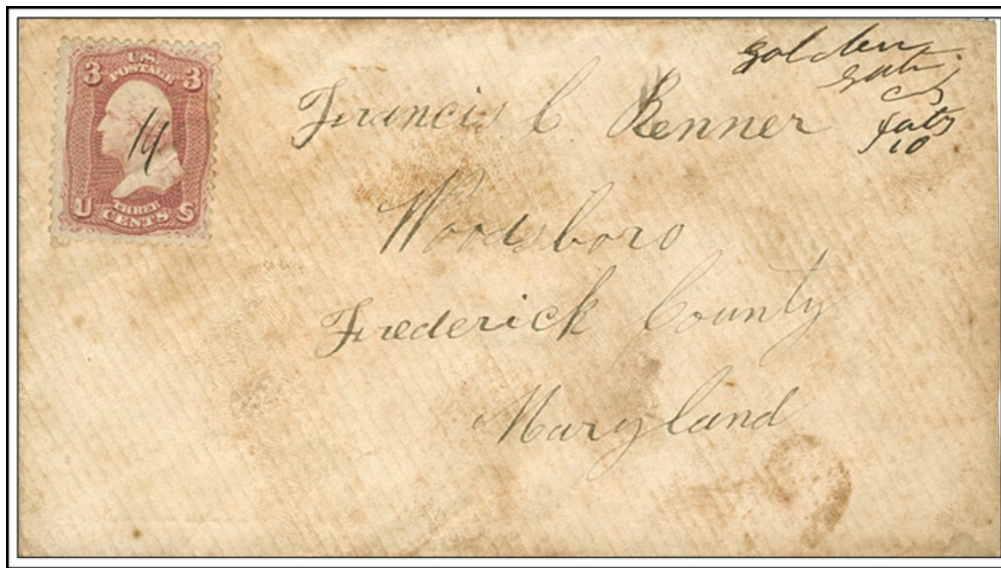 3 U.S. 3
POSTAGE
14
U THREE S
CENTS
golden
gate
July
10
Francis C Renner
Woodsboro
Frederick County
Maryland